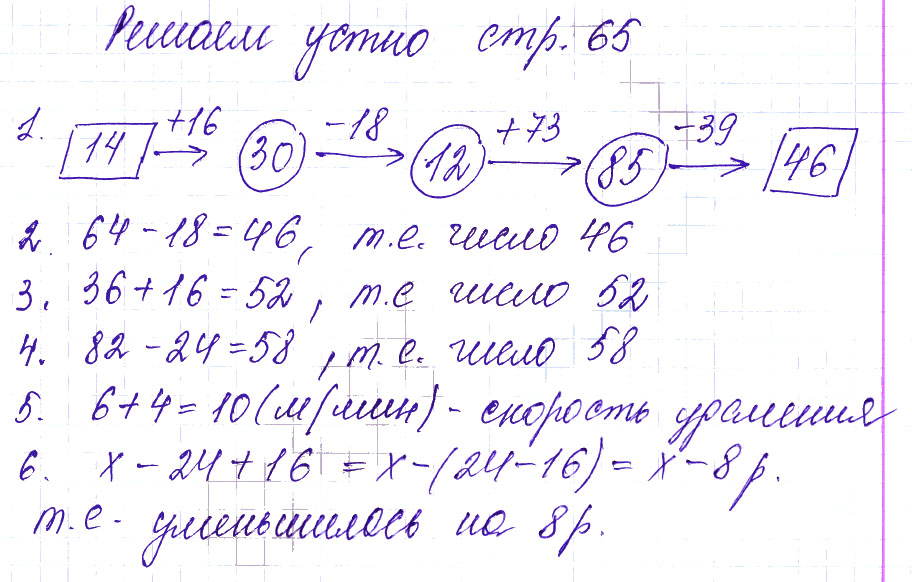 Решаем устно стр. 65
1. 14 +16 → 30 -18 → 12 +73 → 85 -39 → 46
2. 64 - 18 = 46, т.е. число 46
3. 36 + 16 = 52, т.е число 52
4. 82 - 24 = 58, т.е. число 58
5. 6 + 4 = 10 (м/мин) - скорость удаления
6. х - 24 + 16 = х - (24 - 16) = х - 8 р.
т.е. уменьшилось на 8 р.